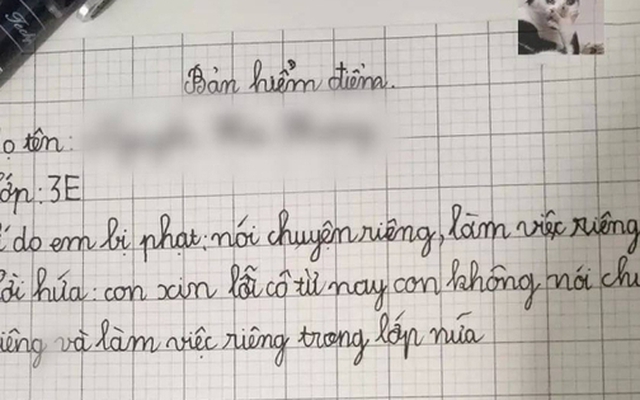 Bản hiểm điểm.
ọ tên:
ớp: 3E
í do em bị phạt: nói chuyện riêng, làm việc riêng
ời hứa: con xin lỗi cô từ nay con không nói chu
iêng và làm việc riêng trong lớp nứa